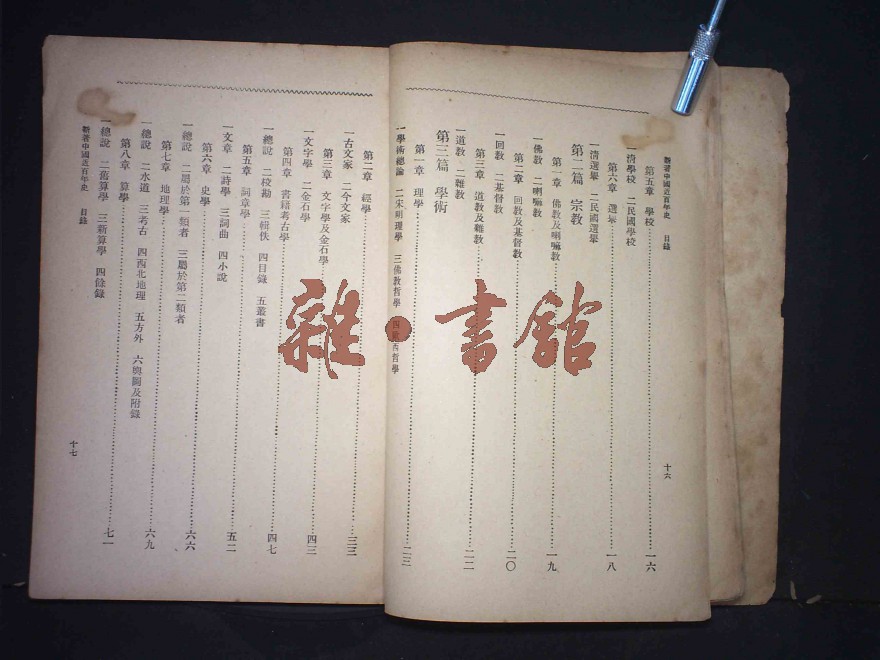 新著中國近百年史 目錄
第五章 學校……一六
一清學校 二民國學校
第六章 選舉……一八
一清選舉 二民國選舉
第二篇 宗教
第一章 佛教及喇嘛教……一九
一佛教 二喇嘛教
第二章 回教及基督教……二〇
一回教 二基督教
第三章 道教及雜教……二二
一道教 二雜教
第三篇 學術
第一章 理學……二三
一學術總論 二宋明理學 三佛教哲學 四 西哲學
十六
第二章 經學……三三
一古文家 二今文家
第三章 文字學及金石學……四三
一文字學 二金石學
第四章 書籍考古學……四七
一總說 二校勘 三輯佚 四目錄 五叢書
第五章 詞章學……五二
一文章 二詩學 三詞曲 四小說
第六章 史學……六六
一總說 二屬於第一類者 三屬於第二類者
第七章 地理學……六九
一總說 二水道 三考古 四西北地理 五方外 六輿圖及附錄
第八章 算學……七一
一總說 二舊算學 三新算學 四餘錄
新著中國近百年史 目錄
十七
雜·書館